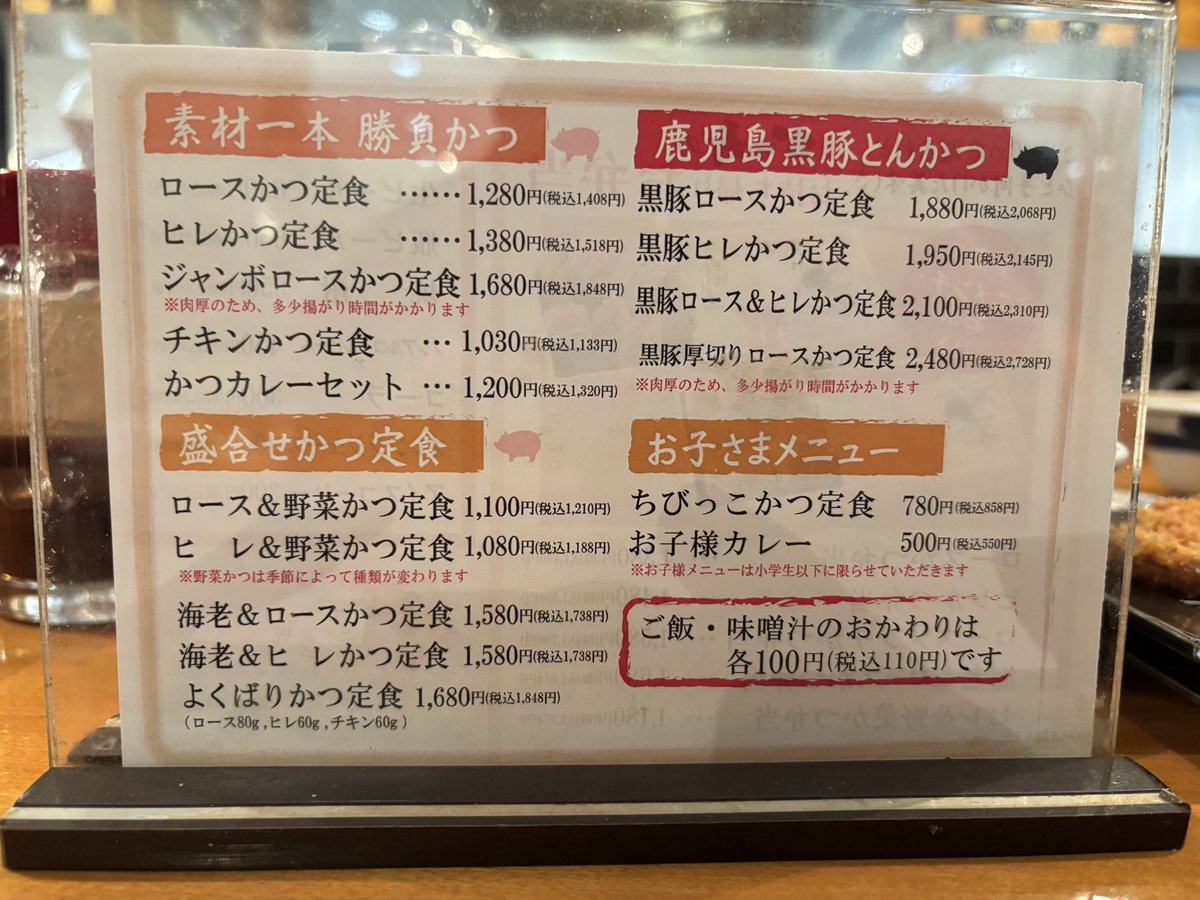 素材一本 勝負かつ
ロースかつ定食 ‥‥‥ 1,280円(税込1,408円)
ヒレかつ定食 ‥‥‥ 1,380円(税込1,518円)
ジャンボロースかつ定食 1,680円(税込1,848円)
※肉厚のため、多少揚がり時間がかかります
チキンかつ定食 … 1,030円(税込1,133円)
かつカレーセット … 1,200円(税込1,320円)
盛合せかつ定食
ロース&野菜かつ定食 1,100円(税込1,210円)
ヒ レ&野菜かつ定食 1,080円(税込1,188円)
※野菜かつは季節によって種類が変わります
海老&ロースかつ定食 1,580円(税込1,738円)
海老&ヒ レかつ定食 1,580円(税込1,738円)
よくばりかつ定食 1,680円(税込1,848円)
(ロース80g,ヒレ60g,チキン60g)
鹿児島黒豚とんかつ
黒豚ロースかつ定食 1,880円(税込2,068円)
黒豚ヒレかつ定食 1,950円(税込2,145円)
黒豚ロース&ヒレかつ定食 2,100円(税込2,310円)
黒豚厚切りロースかつ定食 2,480円(税込2,728円)
※肉厚のため、多少揚がり時間がかかります
お子さまメニュー
ちびっこかつ定食 780円(税込858円)
お子様カレー 500円(税込550円)
※お子様メニューは小学生以下に限らせていただきます
ご飯・味噌汁のおかわりは
各100円(税込110円)です